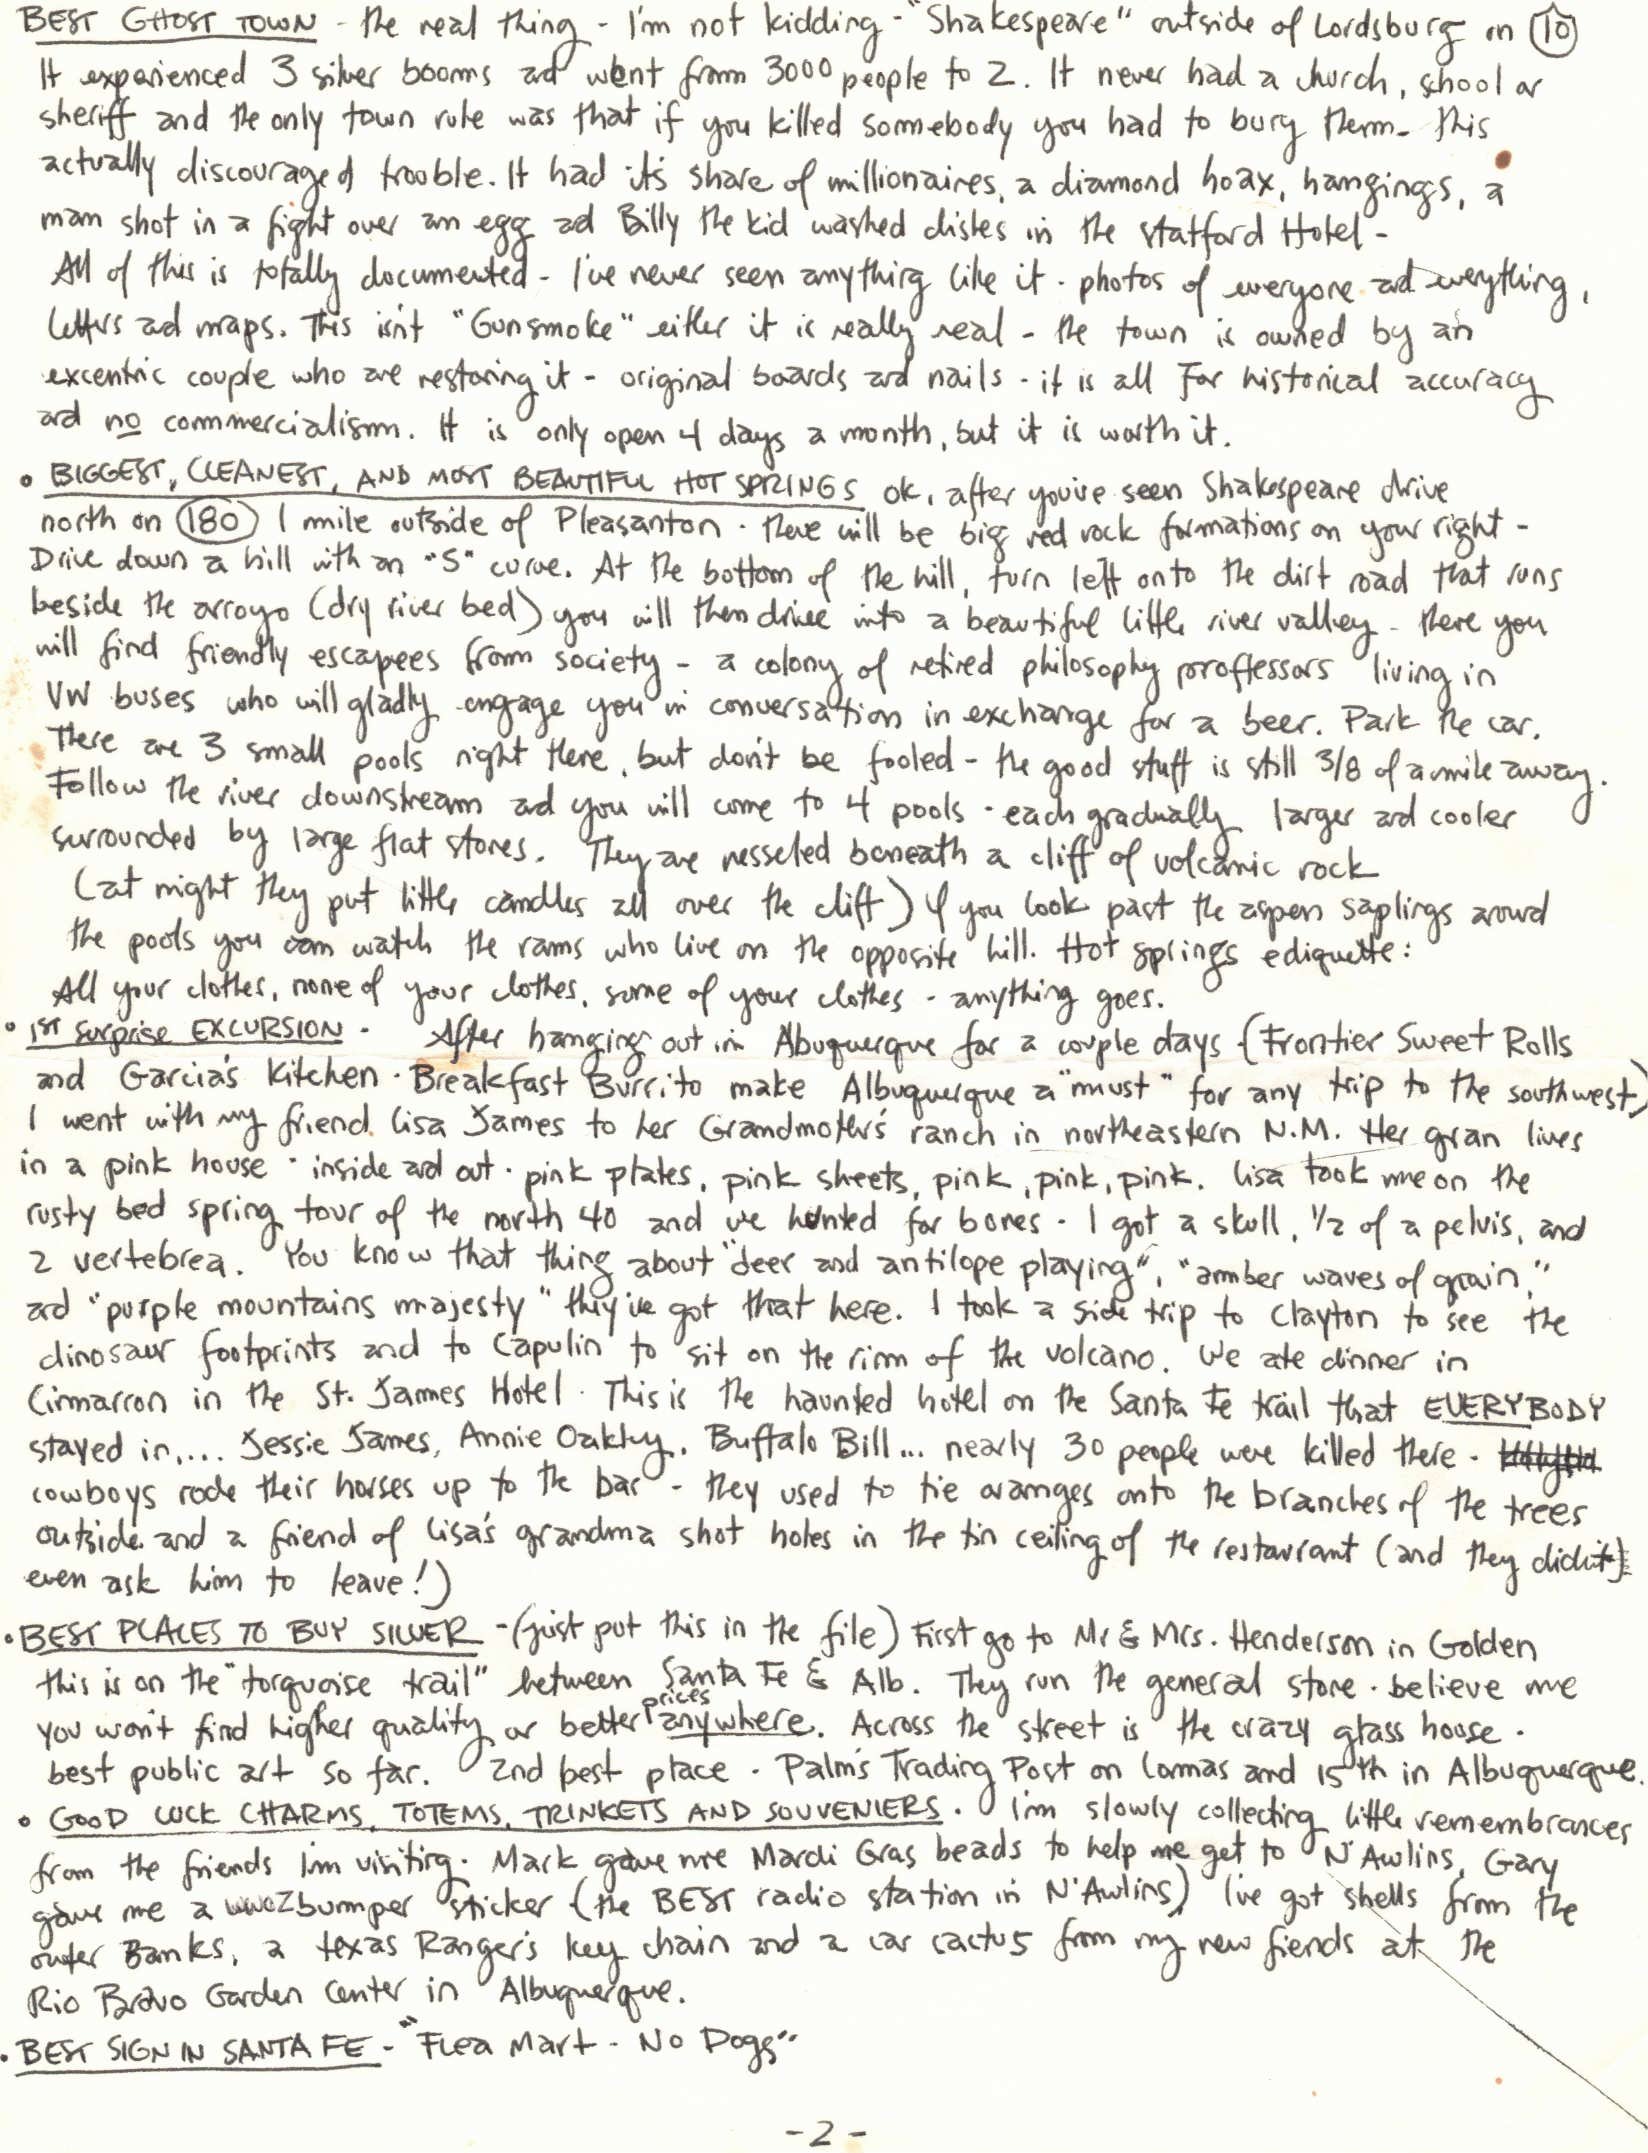 BEST GHOST TOWN - the real thing - I'm not kidding - "Shakespeare" outside of Lordsburg on 10
It experienced 3 silver booms ad went from 3000 people to 2. It never had a church, school or
sheriff and the only town rule was that if you killed somebody you had to bury them - this
actually discouraged trouble. It had it's share of millionaires, a diamond hoax, hangings, a
man shot in a fight over an egg ad Billy the kid washed dishes in the Statford Hotel -
All of this is totally documented - I've never seen anything like it - photos of everyone ad everything,
letters ad maps. This isn't "Gunsmoke" either it is really real - the town is owned by an
excentric couple who are restoring it - original boards ad nails - it is all for historical accuracy
ad no commercialism. It is only open 4 days a month, but it is worth it.
• BIGGEST, CLEANEST, AND MOST BEAUTIFUL HOT SPRINGS ok, after you've seen Shakespeare drive
north on 180 1 mile outside of Pleasanton - there will be big red rock formations on your right -
Drive down a hill with an "S" curve. At the bottom of the hill, turn left onto the dirt road that runs
beside the arroyo (dry river bed) you will then drive into a beautiful little river valley - there you
will find friendly escapees from society - a colony of retired philosophy proffessors living in
VW buses who will gladly engage you in conversation in exchange for a beer. Park the car.
There are 3 small pools right there, but don't be fooled - the good stuff is still 3/8 of a mile away.
Follow the river downstream ad you will come to 4 pools - each gradually larger ad cooler
surrounded by large flat stones. They are nesseled beneath a cliff of volcanic rock
(at night they put little candles all over the cliff) If you look past the aspen saplings around
the pools you can watch the rams who live on the opposite hill. Hot springs ediquette:
All your clothes, none of your clothes, some of your clothes - anything goes.
• 1ST surprise EXCURSION - After hanging out in Abuquerque for a couple days - (Frontier Sweet Rolls
and Garcia's Kitchen - Breakfast Burrito make Albuquerque a "must" for any trip to the southwest)
I went with my friend Lisa James to her Grandmother's ranch in northeastern N.M. Her gran lives
in a pink house - inside ad out - pink plates, pink sheets, pink, pink, pink. Lisa took me on the
rusty bed spring tour of the north 40 and we hunted for bones - I got a skull, 1/2 of a pelvis, and
2 vertebrea. You know that thing about "deer and antilope playing", "amber waves of grain,"
ad "purple mountains majesty" they've got that here. I took a side trip to Clayton to see the
dinosaur footprints and to Capulin to sit on the rim of the volcano. We ate dinner in
Cimarron in the St. James Hotel - This is the haunted hotel on the Santa Fe trail that EVERYBODY
stayed in.... Jessie James, Annie Oakley, Buffalo Bill... nearly 30 people were killed there -
cowboys rode their horses up to the bar - they used to tie oranges onto the branches of the trees
outside and a friend of Lisa's grandma shot holes in the tin ceiling of the restaurant (and they didn't
even ask him to leave!)
• BEST PLACES TO BUY SILVER - (just put this in the file) First go to Mr & Mrs. Henderson in Golden
this is on the "torquoise trail" between Santa Fe & Alb. They run the general store - believe me
you won't find higher quality or better prices anywhere. Across the street is the crazy glass house -
best public art so far. 2nd best place - Palm's Trading Post on Lomas and 15th in Albuquerque.
• GOOD LUCK CHARMS, TOTEMS, TRINKETS AND SOUVENIERS. I'm slowly collecting little remembrances
from the friends I'm visiting. Mark gave me Mardi Gras beads to help me get to N'Awlins, Gary
gave me a WWOZ bumper sticker (the BEST radio station in N'Awlins) I've got shells from the
outer Banks, a texas Ranger's key chain and a car cactus from my new fiends at the
Rio Bravo Garden Center in Albuquerque.
• BEST SIGN IN SANTA FE - "Flea Mart - No Dogs"
- 2 -